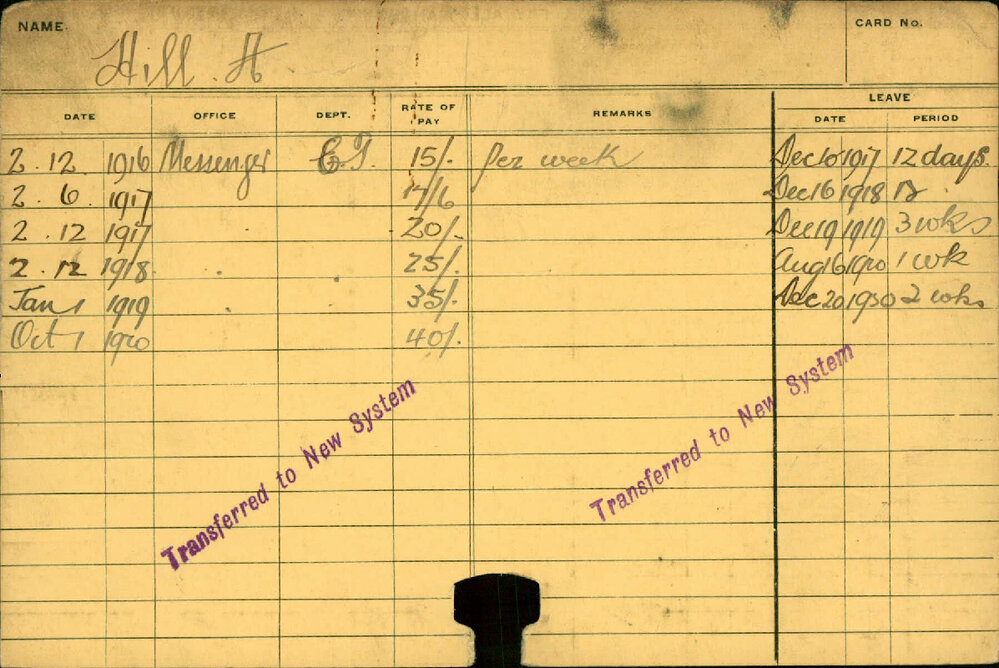 NAME. CARD No.
Hill. A
LEAVE
DATE OFFICE DEPT. RATE OF PAY REMARKS DATE PERIOD
2.12. 1916 Messenger E.T. 15/- per week Dec 10 1917 12 days.
2.6. 1917 17/6 Dec 16 1918 12
2.12 1917 20/- Dec 19 1919 3 wks
2.12 1918 25/- Aug 16 1920 1 wk
Jan 1 1919 35/- Dec 20 1920 2 wks
Oct 1 1920 40/-
Transferred to New System
Transferred to New System